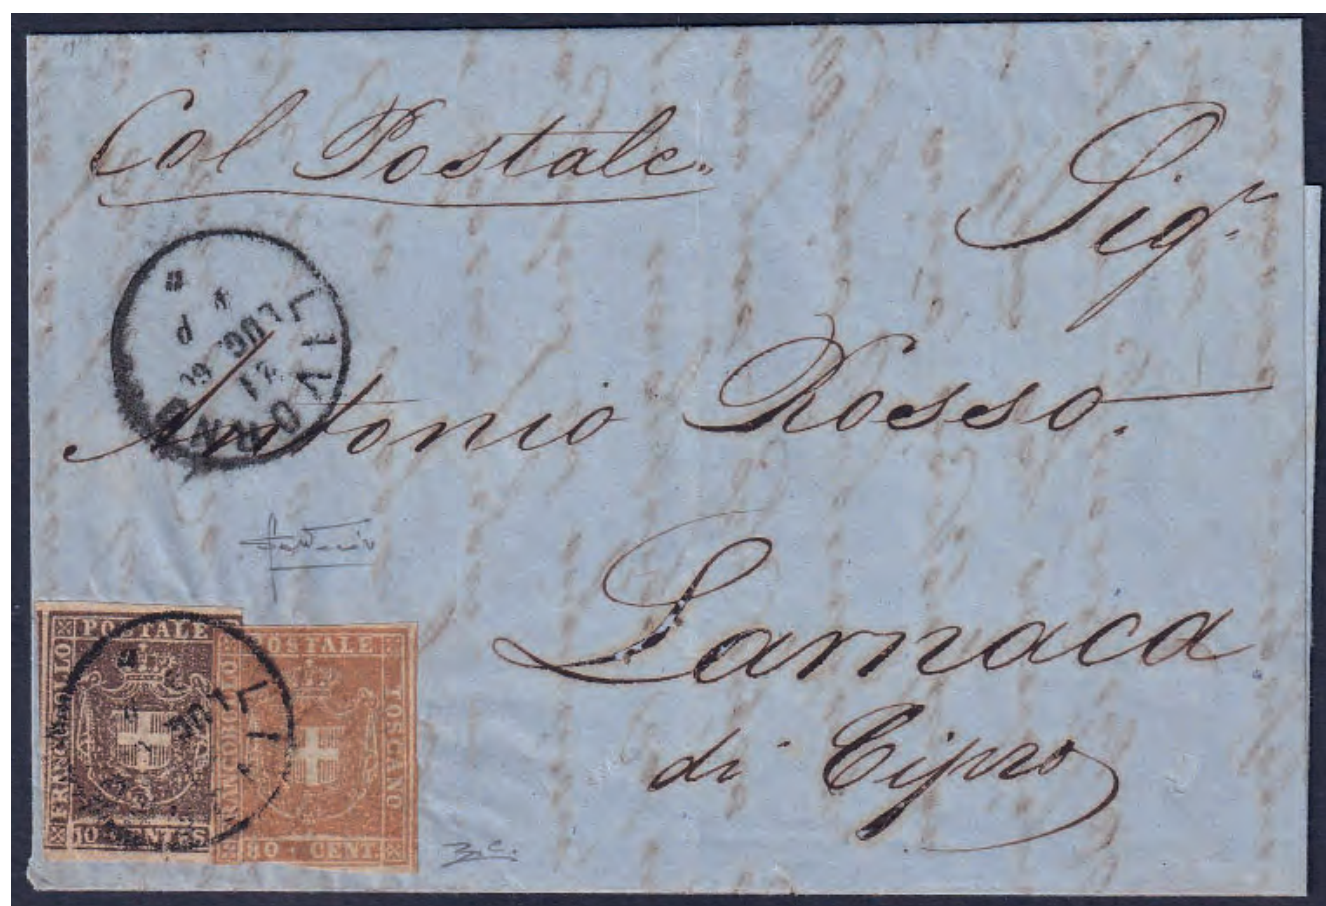 Col Postale
Sigr
Antonio Rosso
Larnaca
di Cipro
LIVORNO
21
LUG. 60
4 P
FRANCOBOLLO
POSTALE
10 CENTES
FRANCOBOLLO
POSTALE
TOSCANO
80 CENT.
LI
LUG